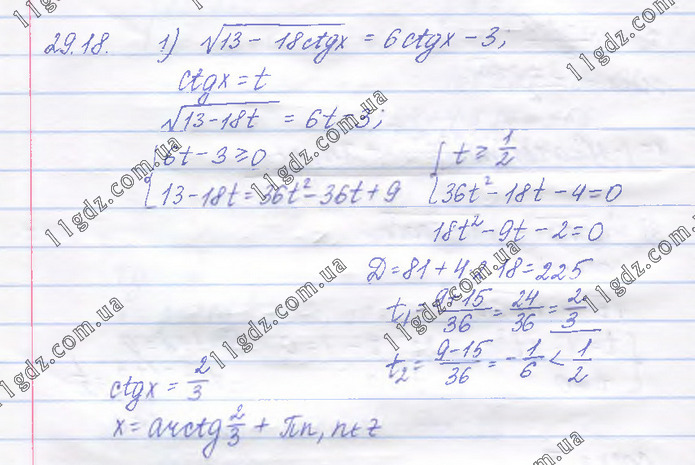 29.18. 1) √13 - 18ctgx = 6ctgx - 3;
ctgx = t
√13-18t = 6t-3;
{ 6t - 3 ≥ 0 { t ≥ 1/2
13 - 18t = 36t² - 36t + 9 36t² - 18t - 4 = 0
18t² - 9t - 2 = 0
D = 81 + 4·2·18 = 225
t₁ = 9+15/36 = 24/36 = 2/3
t₂ = 9-15/36 = -1/6 < 1/2
ctgx = 2/3
x = arcctg 2/3 + πn, n∈z
11gdz.com.ua
11gdz.com.ua
11gdz.com.ua
11gdz.com.ua
11gdz.com.ua
11gdz.com.ua
11gdz.com.ua
11gdz.com.ua